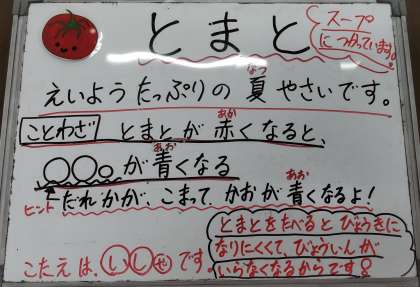 とまと
スープ
につかっています。
えいようたっぷりの夏やさいです。
なつ
ことわざ とまとが赤くなると、
あか
○○○が青くなる
あお
ヒント だれかが、こまって、かおが青くなるよ！
あお
とまとをたべるとびょうきに
なりにくくて、びょういんが
いらなくなるからです！
こたえは、いしゃです。